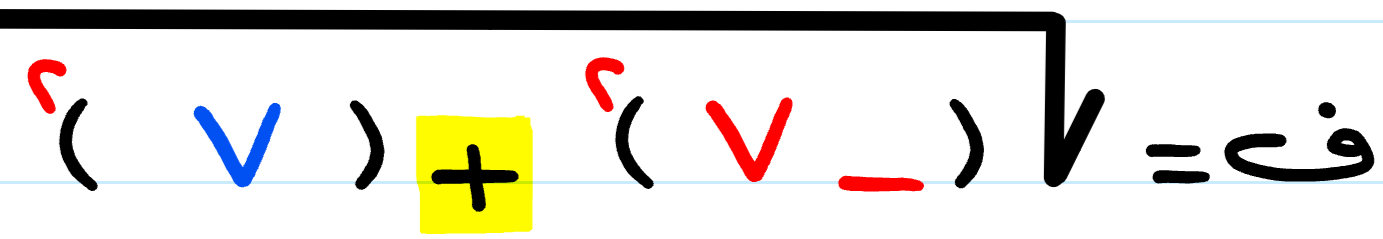 ف = √(_ ٧)٢ + (٧)٢